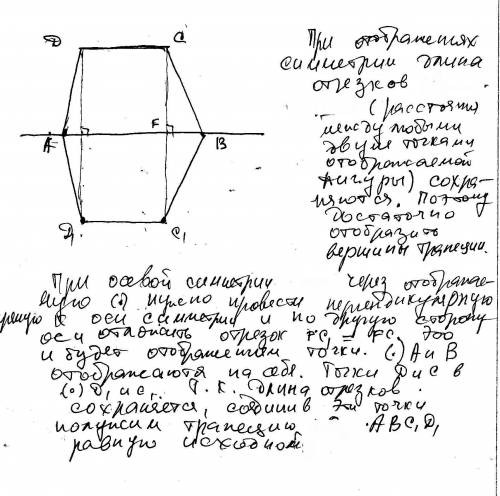 D C
При отображениях
симметрии длина
отрезков
(расстояния
между любыми
двумя точками
отображаемой
фигуры) сохра-
няются. Поэтому
достаточно
отобразить
вершины трапеции.
A F B
D₁ C₁
При осевой симметрии через отображае-
мую (·) нужно провести перпендикулярную
прямую к оси симметрии и по другую сторону
оси отложить отрезок FC₁ = FC. Это
и будет отображением точки. (·) A и B
отображаются на себя. Точки D и C в
(·) D₁ и C₁. Т.к. длина отрезков
сохраняется, соединив эти точки
получим трапецию ABC₁D₁
равную исходной